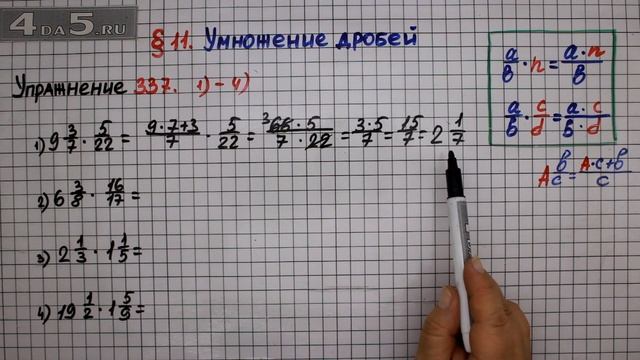 4DA5.RU
§ 11. Умножение дробей
Упражнение 337. 1)-4)
a/b · n = a·n/b
a/b · c/d = a·c/b·d
A b/c = A·c+b/c
1) 9 3/7 · 5/22 = 9·7+3/7 · 5/22 = 3 66·5/7·22 = 3·5/7 = 15/7 = 2 1/7
2) 6 3/8 · 16/17 =
3) 2 1/3 · 1 1/5 =
4) 19 1/2 · 1 5/9 =